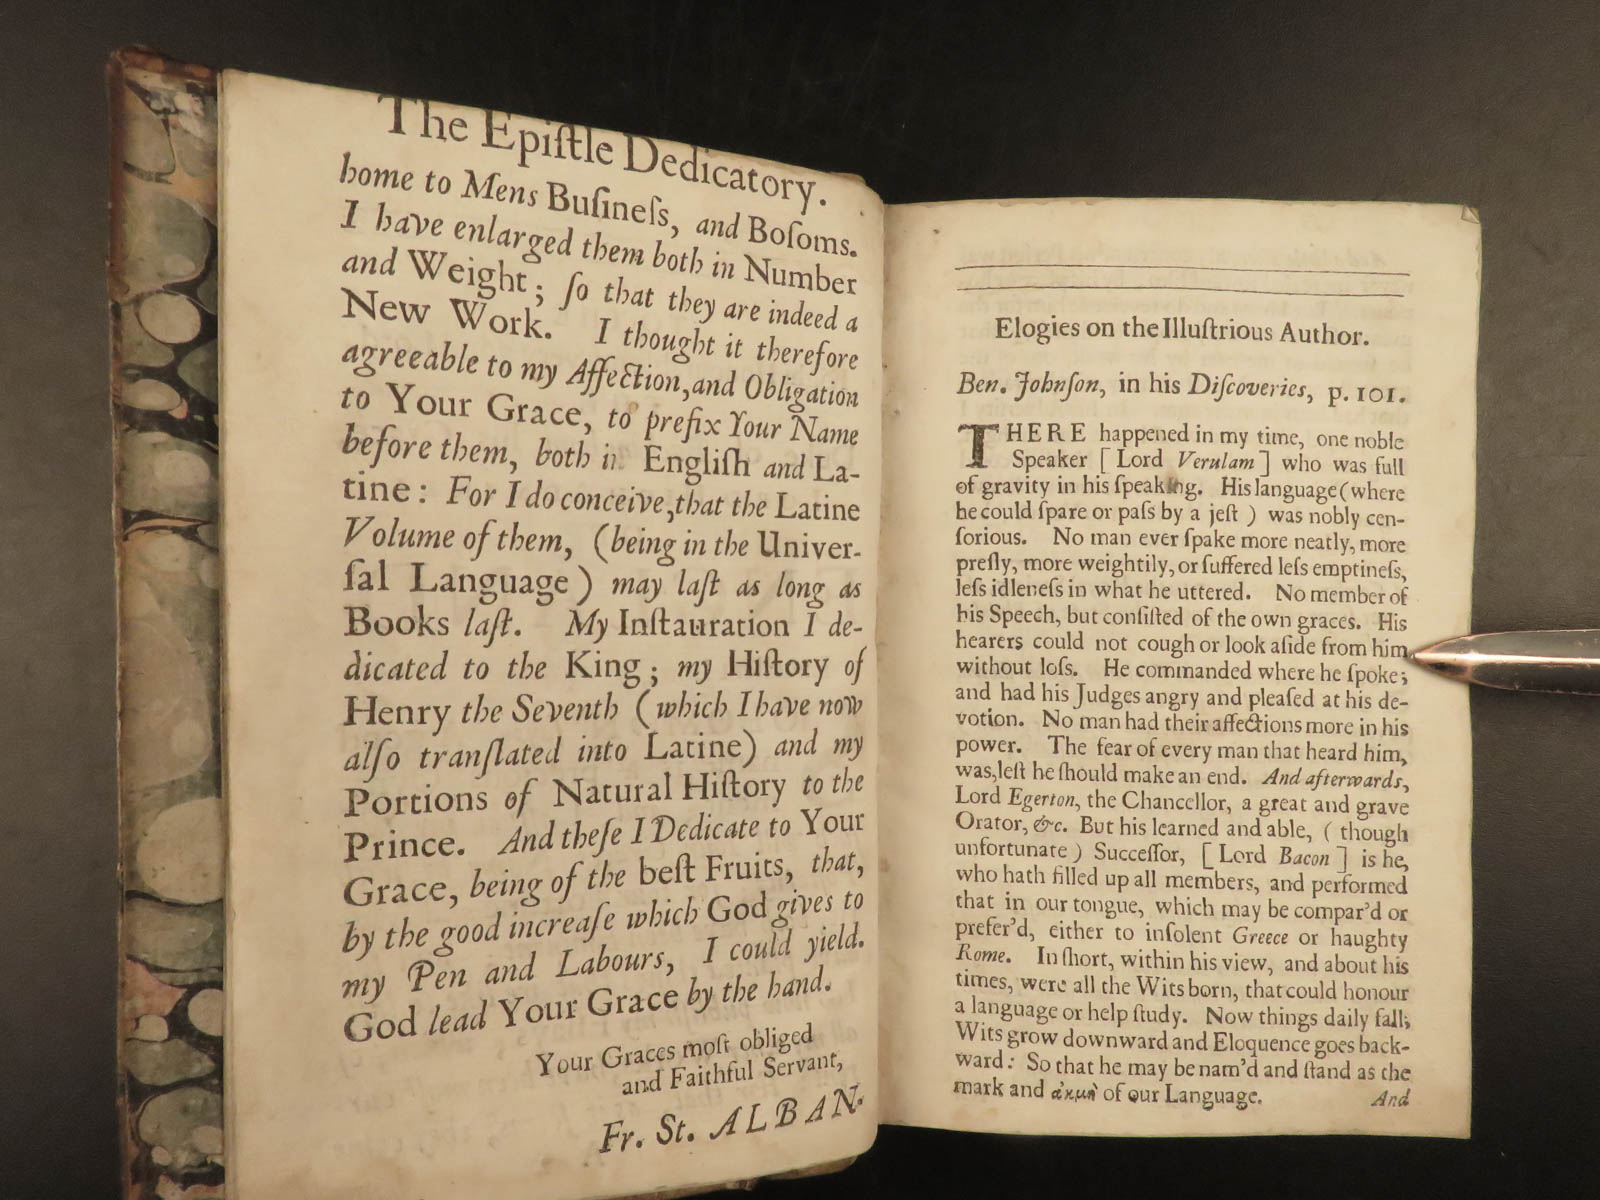 The Epiſtle Dedicatory.
home to Mens Buſineſs, and Boſoms.
I have enlarged them both in Number
and Weight; ſo that they are indeed a
New Work. I thought it therefore
agreeable to my Affection, and Obligation
to Your Grace, to prefix Your Name
before them, both in Engliſh and La-
tine: For I do conceive, that the Latine
Volume of them, (being in the Univer-
ſal Language) may laſt as long as
Books laſt. My Inſtauration I de-
dicated to the King; my Hiſtory of
Henry the Seventh (which I have now
alſo tranſlated into Latine) and my
Portions of Natural Hiſtory to the
Prince. And theſe I Dedicate to Your
Grace, being of the beſt Fruits, that,
by the good increaſe which God gives to
my Pen and Labours, I could yield.
God lead Your Grace by the hand.
Your Graces moſt obliged
and Faithful Servant,
Fr. St. ALBAN.
Elogies on the Illuſtrious Author.
Ben. Johnſon, in his Diſcoveries, p. 101.
THERE happened in my time, one noble
Speaker [ Lord Verulam ] who was full
of gravity in his ſpeaking. His language (where
he could ſpare or paſs by a jeſt ) was nobly cen-
ſorious. No man ever ſpake more neatly, more
preſly, more weightily, or ſuffered leſs emptineſs,
leſs idleneſs in what he uttered. No member of
his Speech, but conſiſted of the own graces. His
hearers could not cough or look aſide from him
without loſs. He commanded where he ſpoke;
and had his Judges angry and pleaſed at his de-
votion. No man had their affections more in his
power. The fear of every man that heard him,
was, leſt he ſhould make an end. And afterwards,
Lord Egerton, the Chancellor, a great and grave
Orator, &c. But his learned and able, ( though
unfortunate ) Succeſſor, [ Lord Bacon ] is he,
who hath filled up all members, and performed
that in our tongue, which may be compar'd or
prefer'd, either to inſolent Greece or haughty
Rome. In ſhort, within his view, and about his
times, were all the Wits born, that could honour
a language or help ſtudy. Now things daily fall;
Wits grow downward and Eloquence goes back-
ward: So that he may be nam'd and ſtand as the
mark and ἀκμὴ of our Language.
And